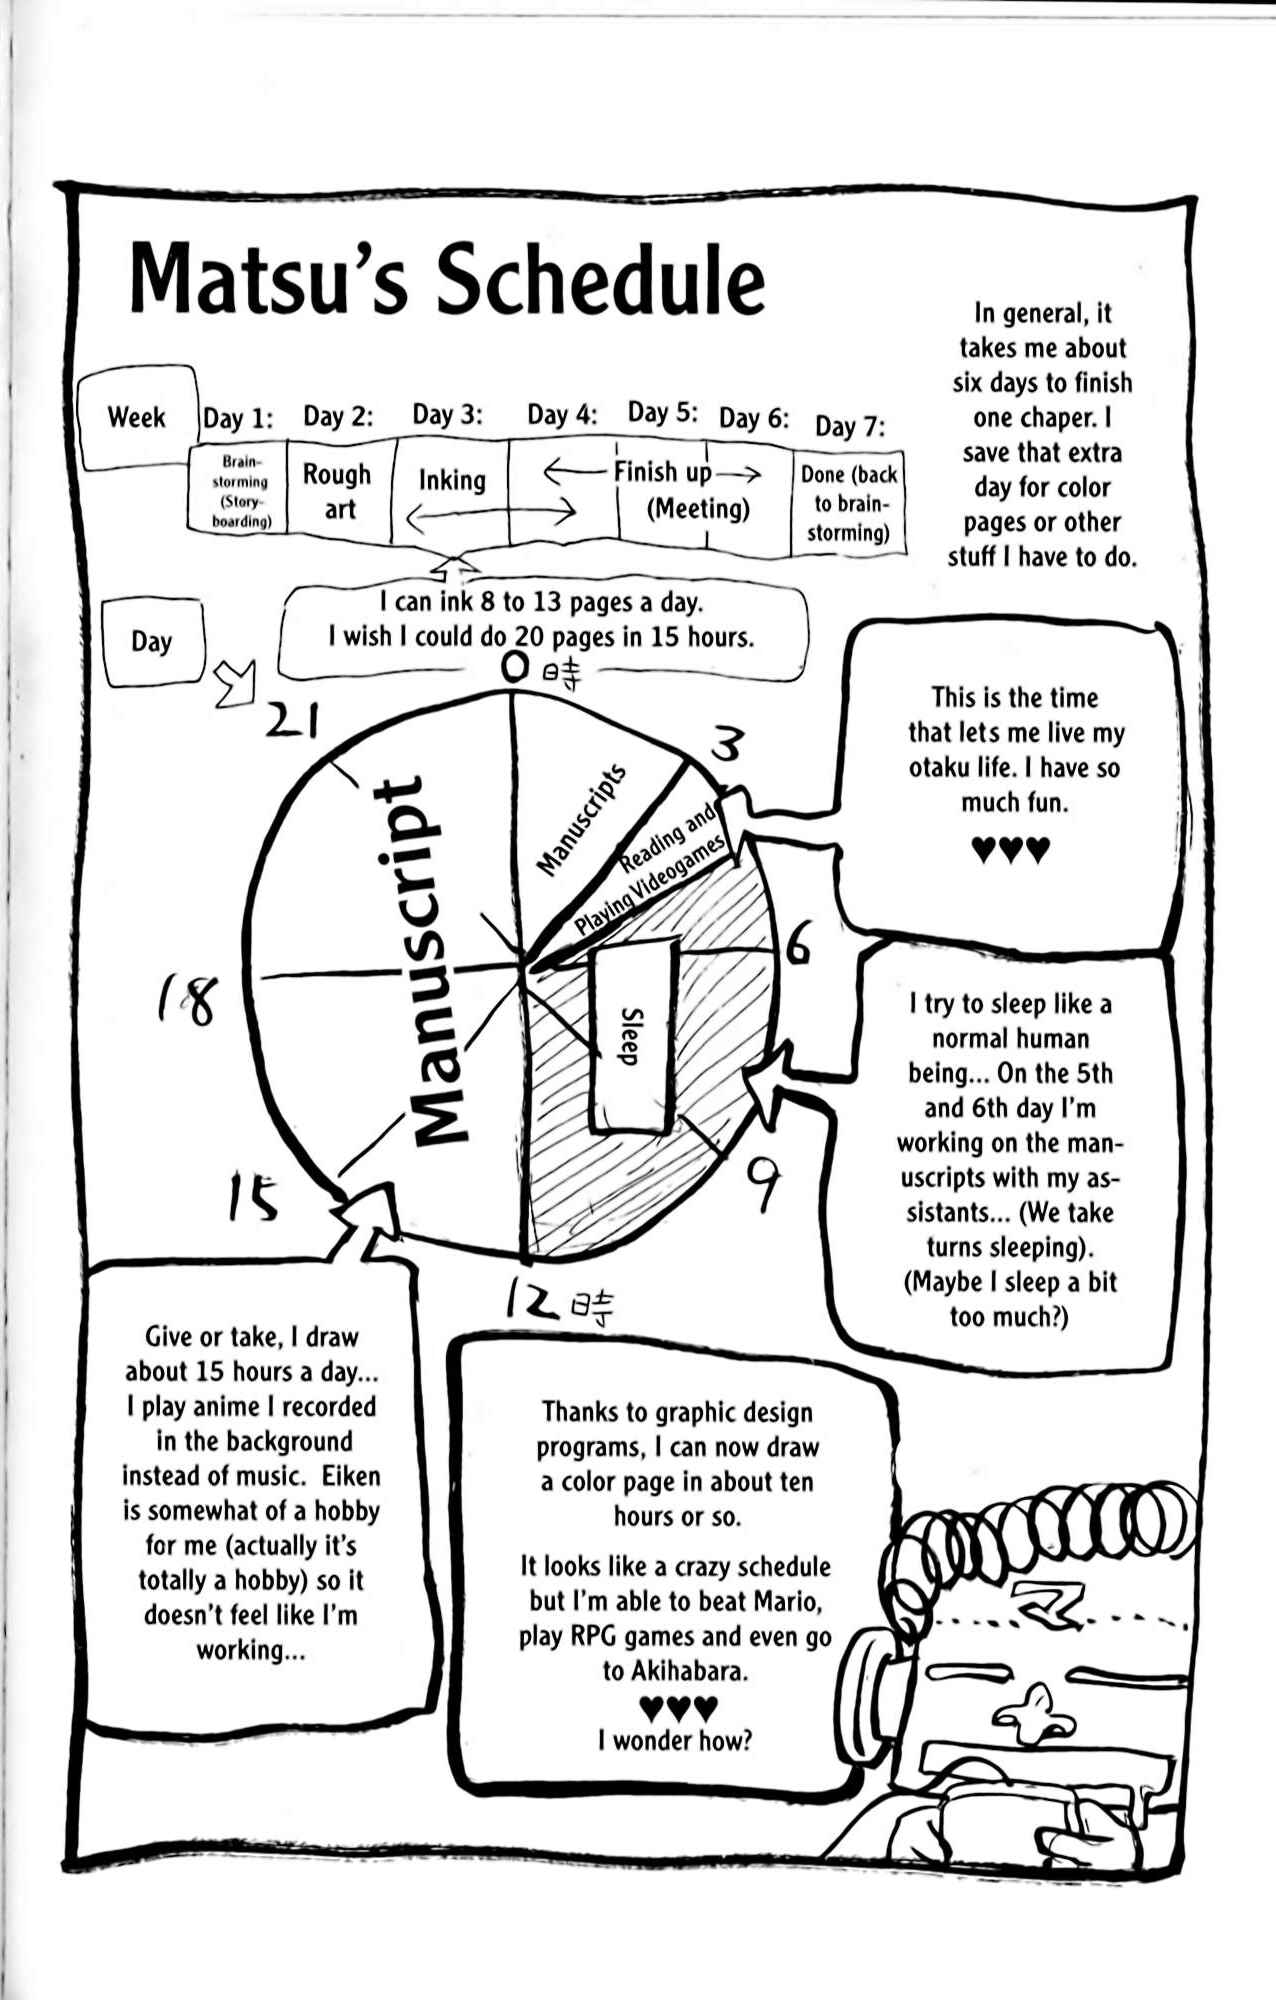 Matsu's Schedule
In general, it
takes me about
six days to finish
one chaper. I
save that extra
day for color
pages or other
stuff I have to do.
Week
Day 1:
Day 2:
Day 3:
Day 4:
Day 5:
Day 6:
Day 7:
Brain-
storming
(Story-
boarding)
Rough
art
Inking
Finish up
(Meeting)
Done (back
to brain-
storming)
I can ink 8 to 13 pages a day.
I wish I could do 20 pages in 15 hours.
Day
0時
3
6
9
12時
15
18
21
Manuscripts
Reading and
Playing Videogames
Sleep
Manuscript
This is the time
that lets me live my
otaku life. I have so
much fun.
♥♥♥
I try to sleep like a
normal human
being... On the 5th
and 6th day I'm
working on the man-
uscripts with my as-
sistants... (We take
turns sleeping).
(Maybe I sleep a bit
too much?)
Give or take, I draw
about 15 hours a day...
I play anime I recorded
in the background
instead of music. Eiken
is somewhat of a hobby
for me (actually it's
totally a hobby) so it
doesn't feel like I'm
working...
Thanks to graphic design
programs, I can now draw
a color page in about ten
hours or so.
It looks like a crazy schedule
but I'm able to beat Mario,
play RPG games and even go
to Akihabara.
♥♥♥
I wonder how?
マ